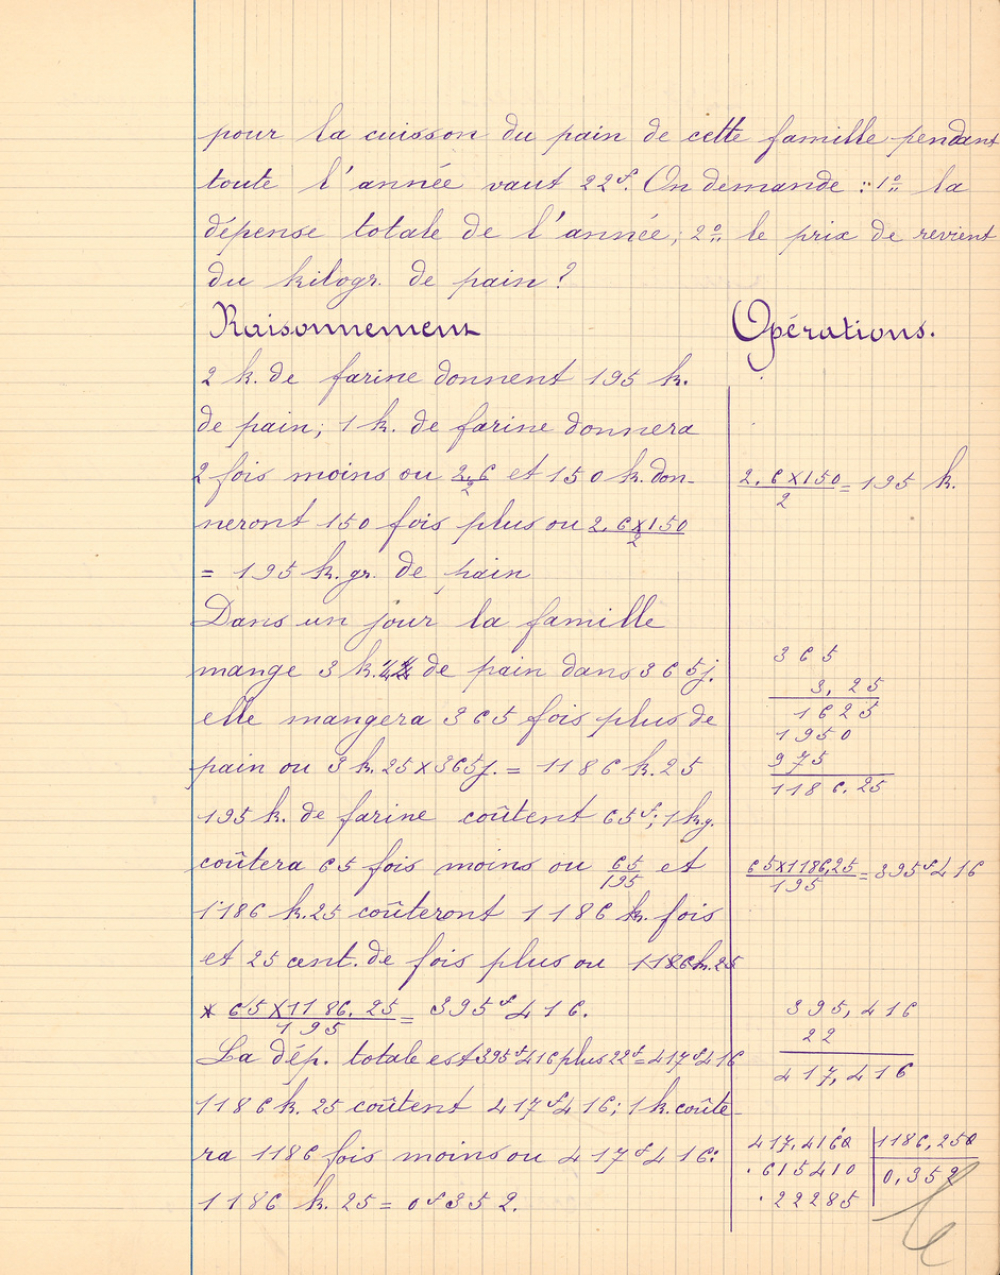 pour la cuisson du pain de cette famille pendant
toute l'année vaut 22f. On demande : 1º la
dépense totale de l'année; 2º le prix de revient
du kilogr. de pain?
Raisonnement
Opérations.
2 k. de farine donnent 195 k.
de pain; 1 k. de farine donnera
2 fois moins ou 2.6/2 et 150 k. don-
neront 150 fois plus ou 2.6x150/2
= 195 k. gr. de pain
Dans un jour la famille
mange 3 k. de pain dans 365 j.
elle mangera 365 fois plus de
pain ou 3 k. 25 x 365 j. = 1186 k. 25
195 k. de farine coûtent 65f; 1 kg.
coûtera 65 fois moins ou 65/195 et
1186 k. 25 coûteront 1186 k. fois
et 25 cent. de fois plus ou 1186 k. 25
* 65 x 1186. 25/195 = 395f 416.
La dép. totale est 395f 416 plus 22f = 417f 416
1186 k. 25 coûtent 417f 416; 1 k. coûte-
ra 1186 fois moins ou 417f 416:
1186 k. 25 = 0f 352.
2.6x150/2 = 195 k.
365
3,25
1625
1950
975
1186.25
65x1186,25/195 = 395f 416
395,416
22
417,416
417,4160 | 1186,250
.615410 | 0,352
.22285